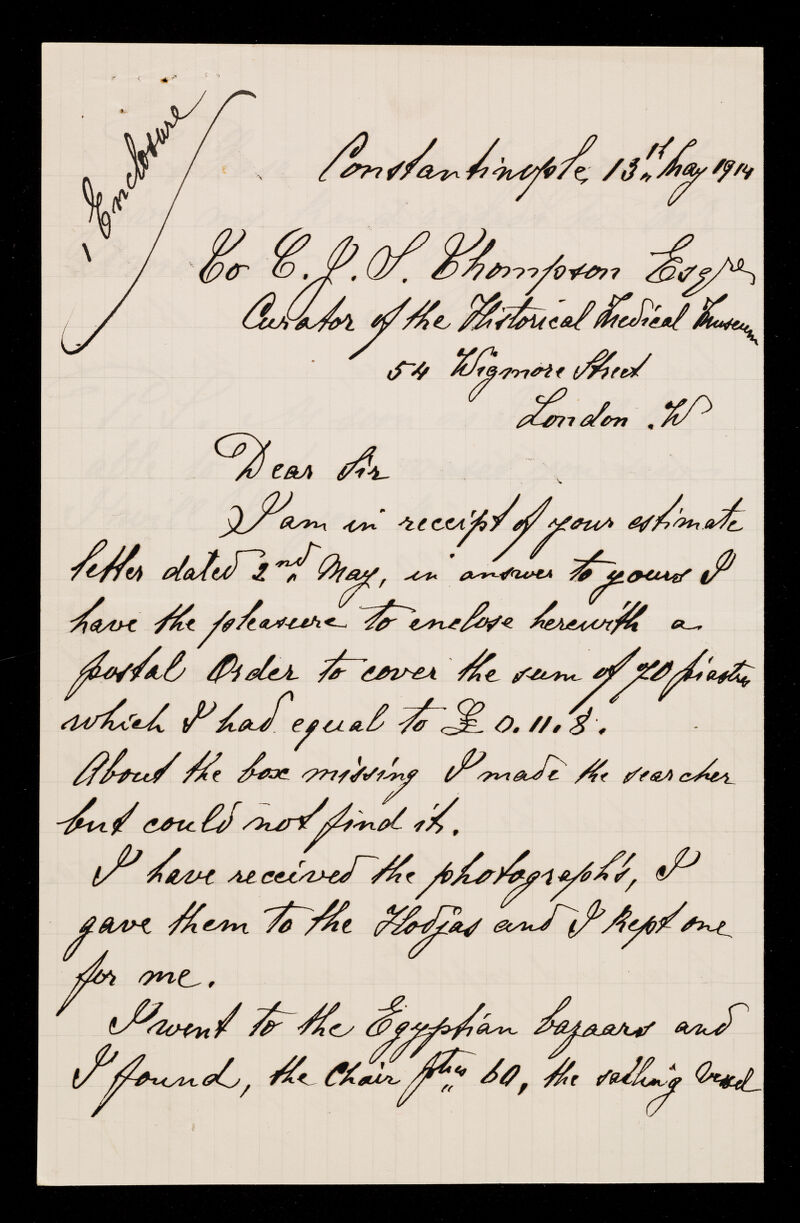 1 Enclosure
Constantinople, 13th May 1914
To C. J. S. Thompson Esqre
Curator of the Historical Medical Museum
54 Wigmore Street
London . W
Dear Sir
I am in receipt of your estimate
letter dated 2nd May, in answer to yours I
have the pleasure to enclose herewith a
postal Order to cover the sum of 70 piastres
which I had equal to £ 0.11.8.
About the box missing I made the searcher
but could not find it.
I have received the photograph's, I
gave them to the Hodjas and I kept one
for me.
I went to the Egyptian bazaars and
I found, the Chair ptres 60, the sailing Vessel